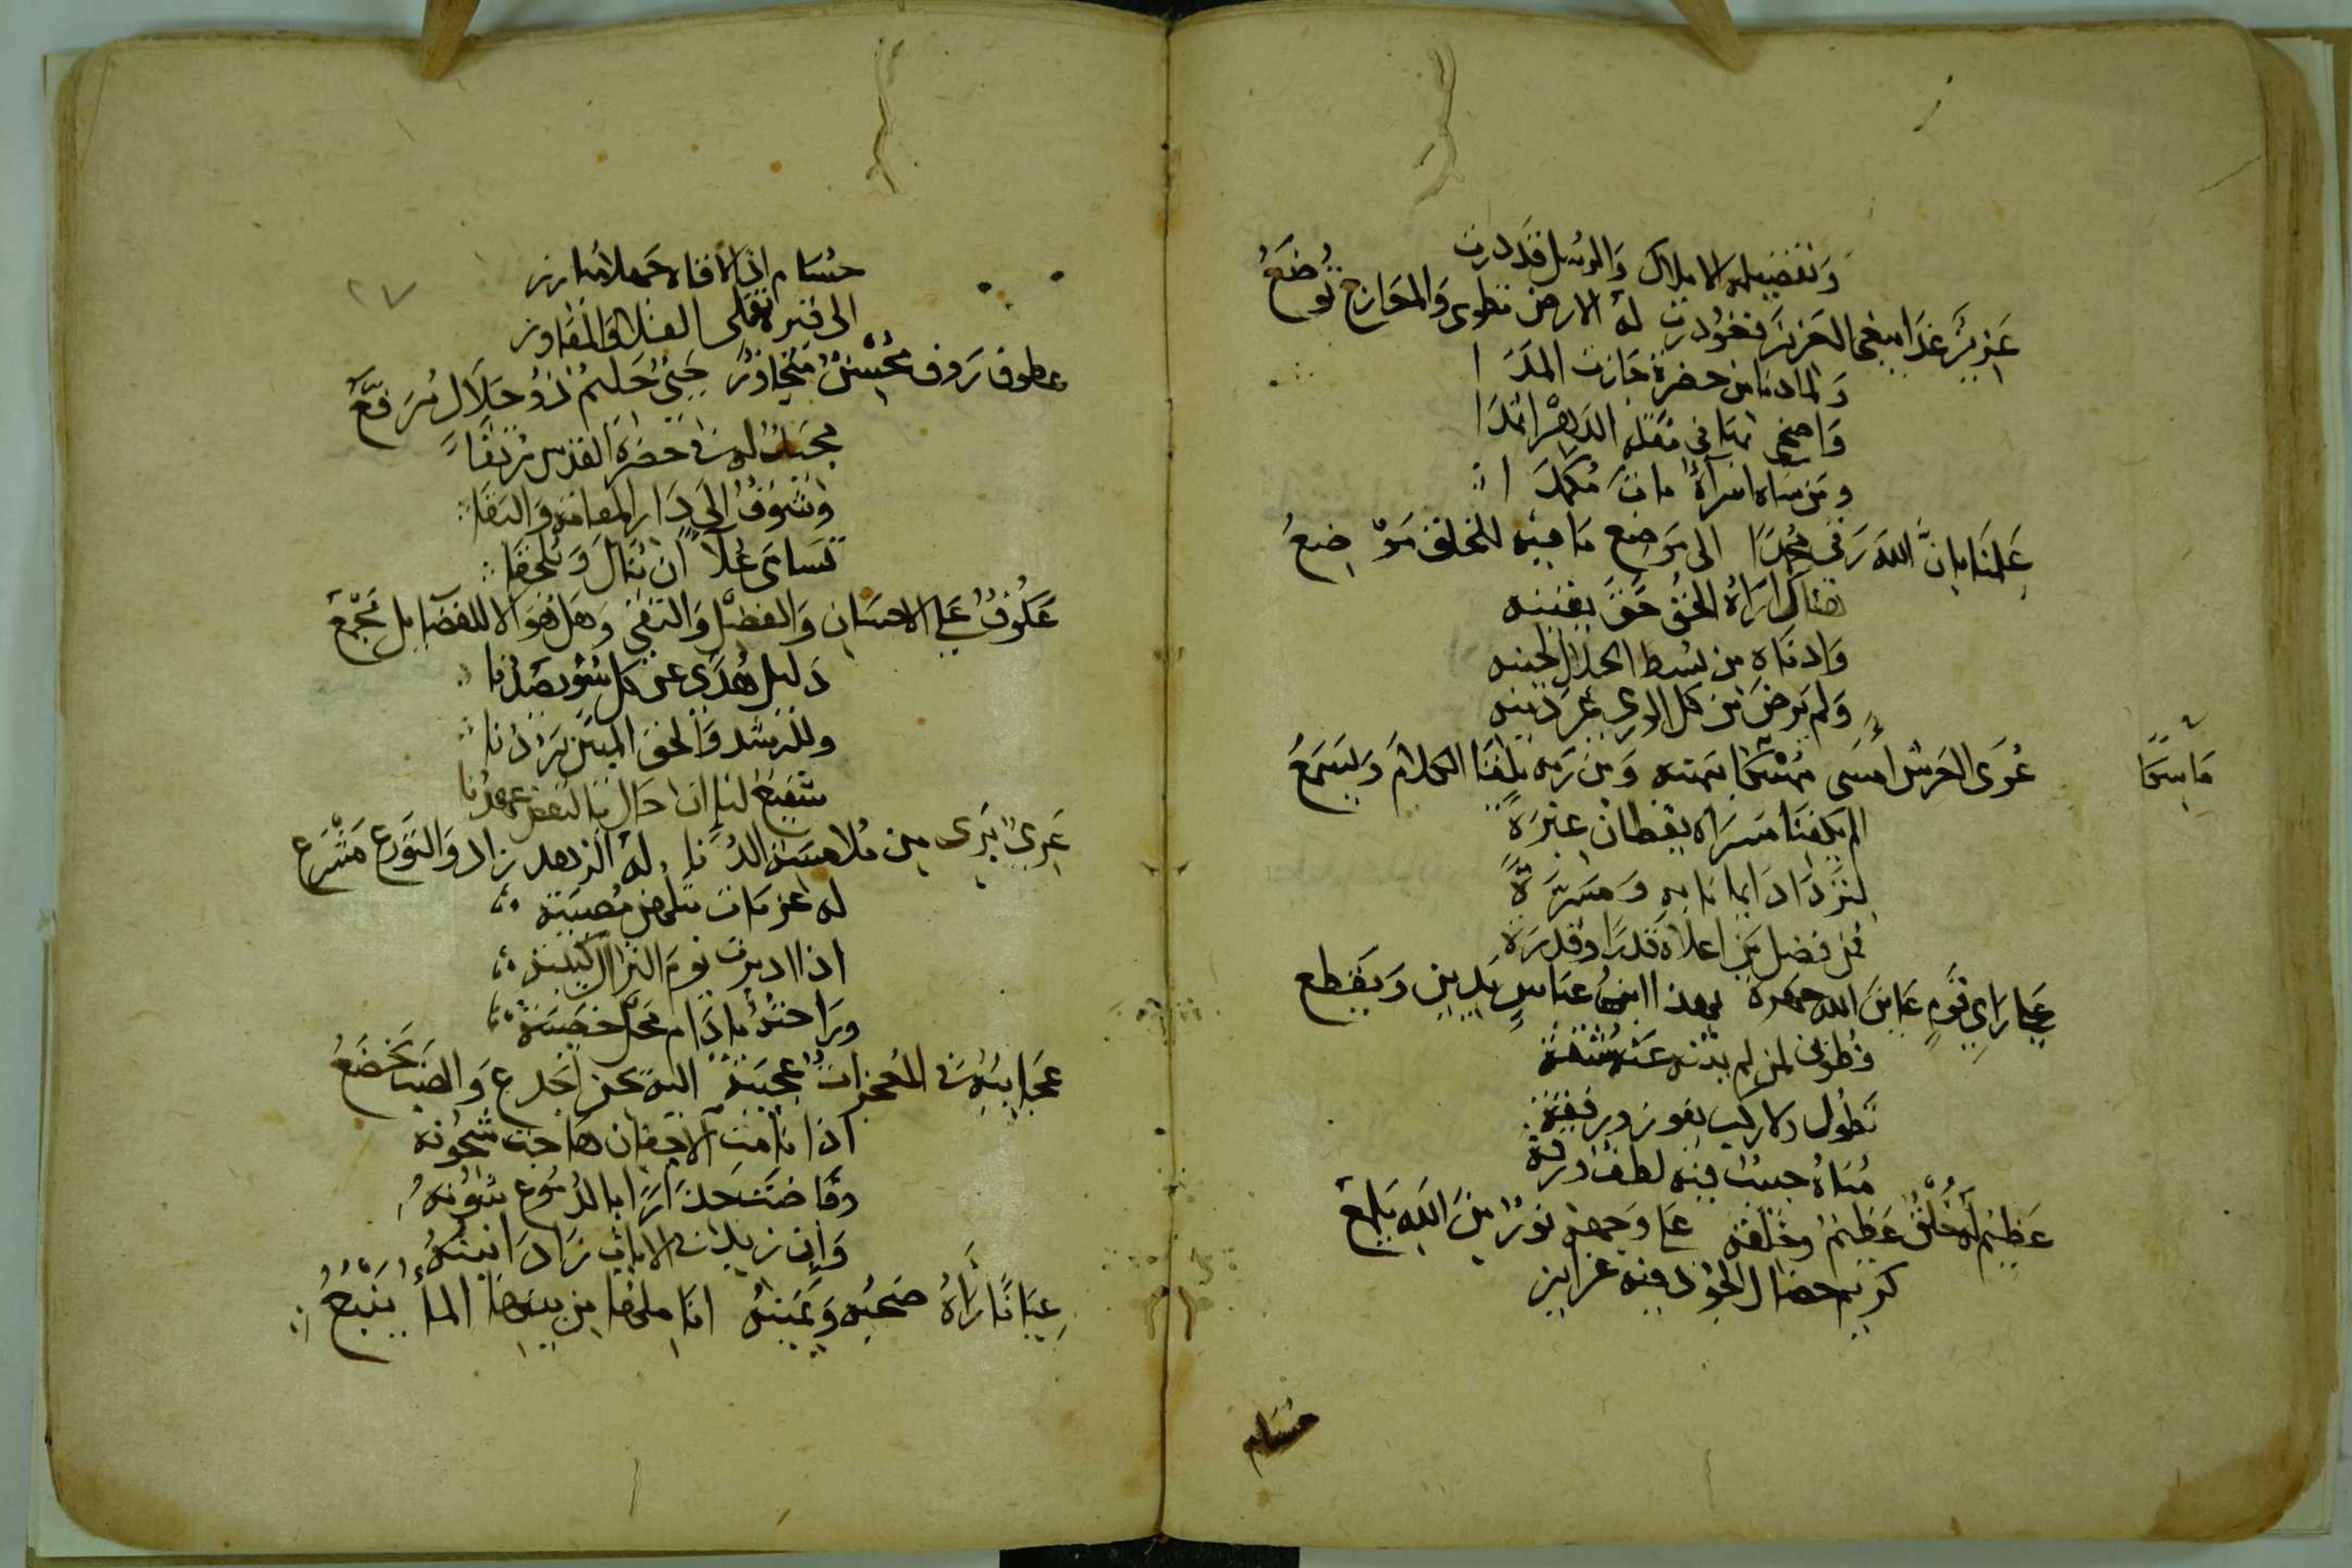 وتفضيله الاملاك والرسل قد درت
عزيز غدا يبغى العزيز فغودرت له الارض تطوى والمعارج توضع
ولما دنا من حضرة جازت المدا
واضحى بها فى مقلة الدهر اثمدا
ومن ساه امراه مات مكمدا
علنا بان الله رقى محمدا الى موضع ما فيه للخلق موضع
هناك اراه الحق حق يقينه
وادناه من بسط الجلال لحينه
ولم يرض من كل الورى غير دينه
على العرش امسى بهمته ومن ربه يلقا الكلام ويسمع
ما سما
الم يكفنا مسراه يقظان عبرة
لنزداد ايمانا به ومسرة
فمن فضل من اعلاه قدرا وقدرة
عجبا راى قوم عاين الله جهرة بهذا ابن عباس يدين ويقطع
فطوبى لمن لم يثنه عنه
تطول ركاب يفوز ورفقة
مناه حبيب فيه لطف ورقة
عظيم له خلق عظيم وخلقه على وجهه نور من الله يلمع
كريم خصال الجود فيه غرايز
حسام
٢٧
حسام اذا لاقاه جهلا مبارز
الى قبره تفلى الفلا والمفاوز
عطوف رووف محسن متجاوز حيى حليم ذو جلال مرفع
محب له فى حضرة القدس مرتقا
وشوق الى دار المقامة والبقا
تسامى علا ان ينال ويلحقا
عكوف على الاحسان والفضل والتقى وهل هو الا للفضايل مجمع
دليل هدى عن كل سوء يصدنا
وللرشد والحق المبين يردنا
شفيع لنا ان حال بالنقض عهدنا
عرى برى من ملامسة الدنا له الزهد زاد والتورع مشرع
له عزمات مصيبة
اذا اديرت يوم النزال كتيبة
وراحته ما دام محل خصيبة
عجايبه فى المعجزات عجيبة اليه يحن الجذع والضب يخضع
اذا نامت الاجفان هاجت شجونه
وفاضت حذارا بالدموع شؤونه
وان زيد فى الايات زاد انينه
عيانا راه صحبه ويمينه اناملها من بينها الما ينبع